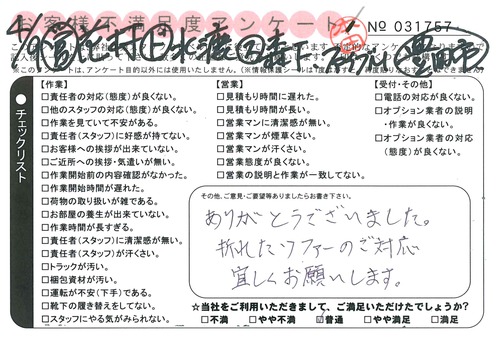 お客様不満足度アンケート
No 031757
●チェックリスト
【作業】
□責任者の対応(態度)が良くない。
□他のスタッフの対応(態度)が良くない。
□作業を見ていて不安がある。
□責任者(スタッフ)に好感が持てない。
□お客様への挨拶が出来ていない。
□ご近所への挨拶・気遣いが無い。
□作業開始前の内容確認がなかった。
□作業開始時間が遅れた。
□荷物の取り扱いが雑である。
□お部屋の養生が出来ていない。
□作業時間が長すぎる。
□責任者(スタッフ)に清潔感が無い。
□責任者(スタッフ)が汗くさい。
□トラックが汚い。
□梱包資材が汚い。
□運転が不安(下手)である。
□靴下の履き替えをしてない。
□スタッフにやる気がみられない。
【営業】
□見積もり時間に遅れた。
□見積もり時間が長い。
□営業マンに清潔感が無い。
□営業マンが煙草くさい。
□営業マンが汗くさい。
□営業態度が良くない。
□営業の説明と作業が一致してない。
【受付・その他】
□電話の対応が良くない。
□オプション業者の説明
・作業が良くない。
□オプション業者の対応
(態度)が良くない。
その他、ご意見・ご要望等ありましたらお書き下さい。
ありがとうございました。
折れたソファーのご対応
宜しくお願いします。
☆当社をご利用いただきまして、ご満足いただけたでしょうか?
□不満 □やや不満 ☑普通 □やや満足 □満足